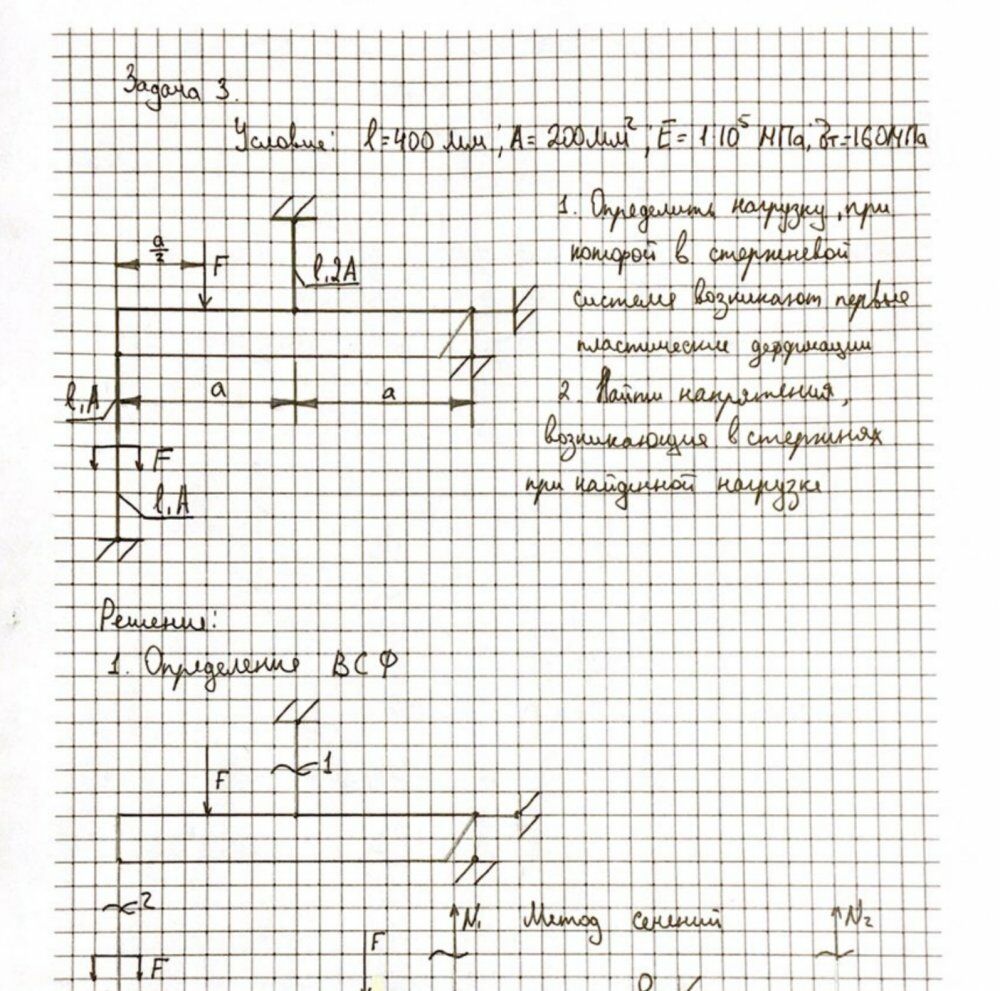 Задача 3.
Условие: l=400 мм; A=200мм²; E=1·10⁵ МПа; σт=160МПа
1. Определить нагрузку, при
которой в стержневой
системе возникают первые
пластические деформации
2. Найти напряжения,
возникающие в стержнях
при найденной нагрузке
a/2
F
l, 2A
a
a
l, A
F
l, A
Решение:
1. Определение ВСФ
1
F
2
N₁
Метод сечений
N₂
F
F